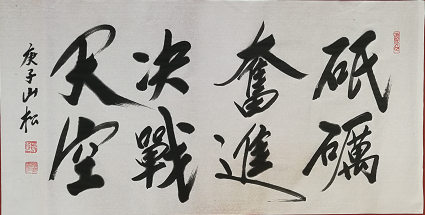 砥礪
奮進
决戰
長空
庚子山松